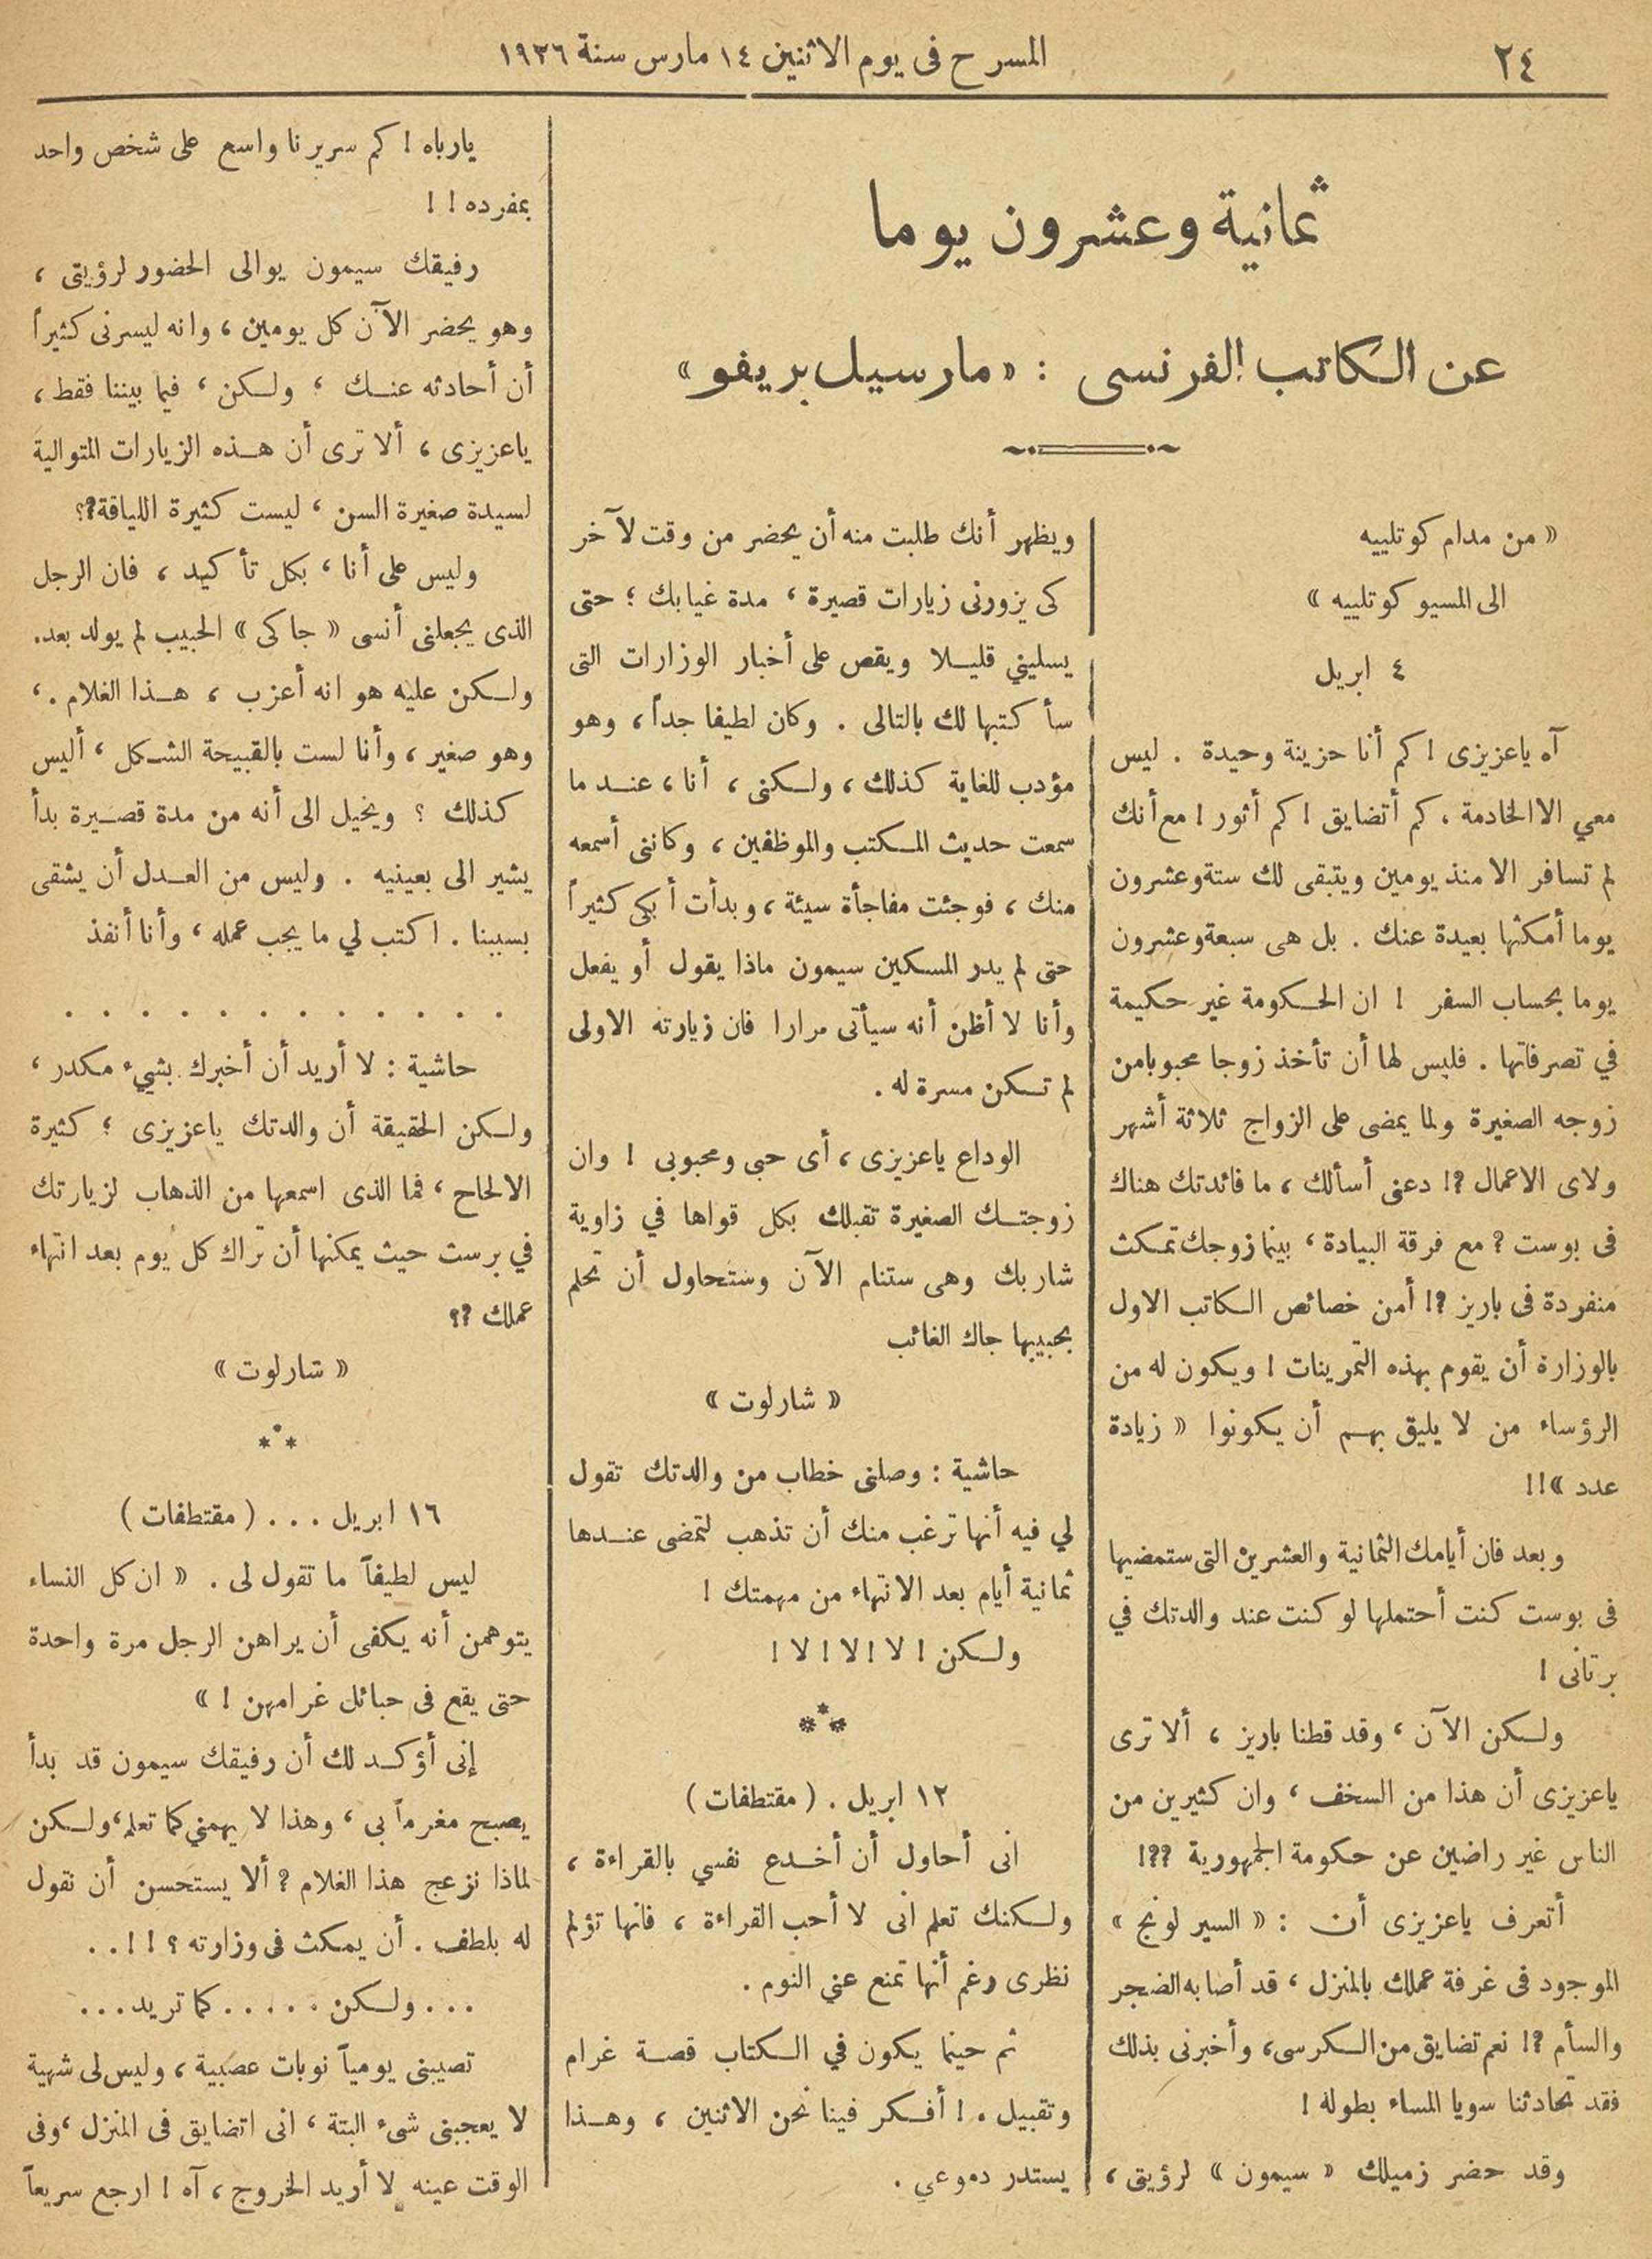 ٢٤
المسرح فى يوم الاثنين ١٤ مارس سنة ١٩٢٦
ثمانية وعشرون يوما
عن الكاتب الفرنسى : «مارسيل بريفو»
« من مدام كوتلييه
الى المسيو كوتلييه »
٤ ابريل
آه ياعزيزى ! كم أنا حزينة وحيدة . ليس
معي الا الخادمة ، كم أتضايق ! كم أثور ! مع أنك
لم تسافر الا منذ يومين ويتبقى لك ستة وعشرون
يوما أمكثها بعيدة عنك . بل هى سبعة وعشرون
يوما بحساب السفر ! ان الحكومة غير حكيمة
في تصرفاتها . فليس لها أن تأخذ زوجا محبوبا من
زوجه الصغيرة ولما يمضى على الزواج ثلاثة أشهر
ولاى الاعمال ?! دعنى أسألك ، ما فائدتك هناك
فى بوست ? مع فرقة البيادة ، بينما زوجك تمكث
منفردة فى باريز ?! أمن خصائص الكاتب الاول
بالوزارة أن يقوم بهذه التمرينات ! ويكون له من
الرؤساء من لا يليق بهم أن يكونوا « زيادة
عدد »!!
وبعد فان أيامك الثمانية والعشرين التى ستمضيها
فى بوست كنت أحتملها لو كنت عند والدتك في
برتانى !
ولكن الآن ، وقد قطنا باريز ، ألا ترى
ياعزيزى أن هذا من السخف ، وان كثيرين من
الناس غير راضين عن حكومة الجمهورية ??!
أتعرف ياعزيزى أن : « السير لونج »
الموجود فى غرفة عملك بالمنزل ، قد أصابه الضجر
والسأم ?! نعم تضايق من الكرسى ، وأخبرنى بذلك
فقد تحادثنا سويا المساء بطوله !
وقد حضر زميلك « سيمون » لرؤيتى ،
ويظهر أنك طلبت منه أن يحضر من وقت لآخر
كى يزورنى زيارات قصيرة ، مدة غيابك ؛ حتى
يسليني قليلا ويقص على أخبار الوزارات التى
سأكتبها لك بالتالى . وكان لطيفا جداً ، وهو
مؤدب للغاية كذلك ، ولكنى ، أنا ، عند ما
سمعت حديث المكتب والموظفين ، وكاننى أسمعه
منك ، فوجئت مفاجأة سيئة ، وبدأت أبكى كثيراً
حتى لم يدر المسكين سيمون ماذا يقول أو يفعل
وأنا لا أظن أنه سيأتى مرارا فان زيارته الاولى
لم تكن مسرة له .
الوداع ياعزيزى ، أى حبي ومحبوبى ! وان
زوجتك الصغيرة تقبلك بكل قواها في زاوية
شاربك وهى ستنام الآن وستحاول أن تحلم
بحبيبها جاك الغائب
« شارلوت »
حاشية : وصلنى خطاب من والدتك تقول
لي فيه أنها ترغب منك أن تذهب لتمضى عندها
ثمانية أيام بعد الانتهاء من مهمتك !
ولكن ! لا ! لا ! لا !
***
١٢ ابريل . ( مقتطفات )
انى أحاول أن أخدع نفسي بالقراءة ،
ولكنك تعلم انى لا أحب القراءة ، فانها تؤلم
نظرى رغم أنها تمنع عني النوم .
ثم حينما يكون في الكتاب قصة غرام
وتقبيل . ! أفكر فينا نحن الاثنين ، وهذا
يستدر دموعي .
يارباه ! كم سريرنا واسع على شخص واحد
بمفرده ! !
رفيقك سيمون يوالى الحضور لرؤيتى ،
وهو يحضر الآن كل يومين ، وانه ليسرنى كثيراً
أن أحادثه عنك ، ولكن ، فيما بيننا فقط ،
ياعزيزى ، ألا ترى أن هذه الزيارات المتوالية
لسيدة صغيرة السن ، ليست كثيرة اللياقة?؟
وليس على أنا ، بكل تأكيد ، فان الرجل
الذى يجعلنى أنسى « جاكى » الحبيب لم يولد بعد.
ولكن عليه هو انه أعزب ، هذا الغلام . ،
وهو صغير ، وأنا لست بالقبيحة الشكل ، أليس
كذلك ؟ ويخيل الى أنه من مدة قصيرة بدأ
يشير الى بعينيه . وليس من العدل أن يشقى
بسببنا . اكتب لي ما يجب عمله ، وأنا أنفذ
. . . . . . . . . . . .
حاشية : لا أريد أن أخبرك بشيء مكدر ،
ولكن الحقيقة أن والدتك ياعزيزى ؛ كثيرة
الالحاح ، فما الذى اسمعها من الذهاب لزيارتك
في برست حيث يمكنها أن تراك كل يوم بعد انتهاء
عملك ?؟
« شارلوت »
***
١٦ ابريل . . . ( مقتطفات )
ليس لطيفاً ما تقول لى . « ان كل النساء
يتوهمن أنه يكفى أن يراهن الرجل مرة واحدة
حتى يقع فى حبائل غرامهن ! »
إنى أؤكد لك أن رفيقك سيمون قد بدأ
يصبح مغرماً بى ، وهذا لا يهمني كما تعلم ، ولكن
لماذا نزعج هذا الغلام ? ألا يستحسن أن نقول
له بلطف . أن يمكث فى وزارته ؟ ! ! . .
. . . ولكن . . . . . كما تريد . . .
تصيبنى يومياً نوبات عصبية ، وليس لى شهية
لا يعجبنى شىء البتة ، انى اتضايق فى المنزل ، وفى
الوقت عينه لا أريد الخروج ، آه ! ارجع سريعاً